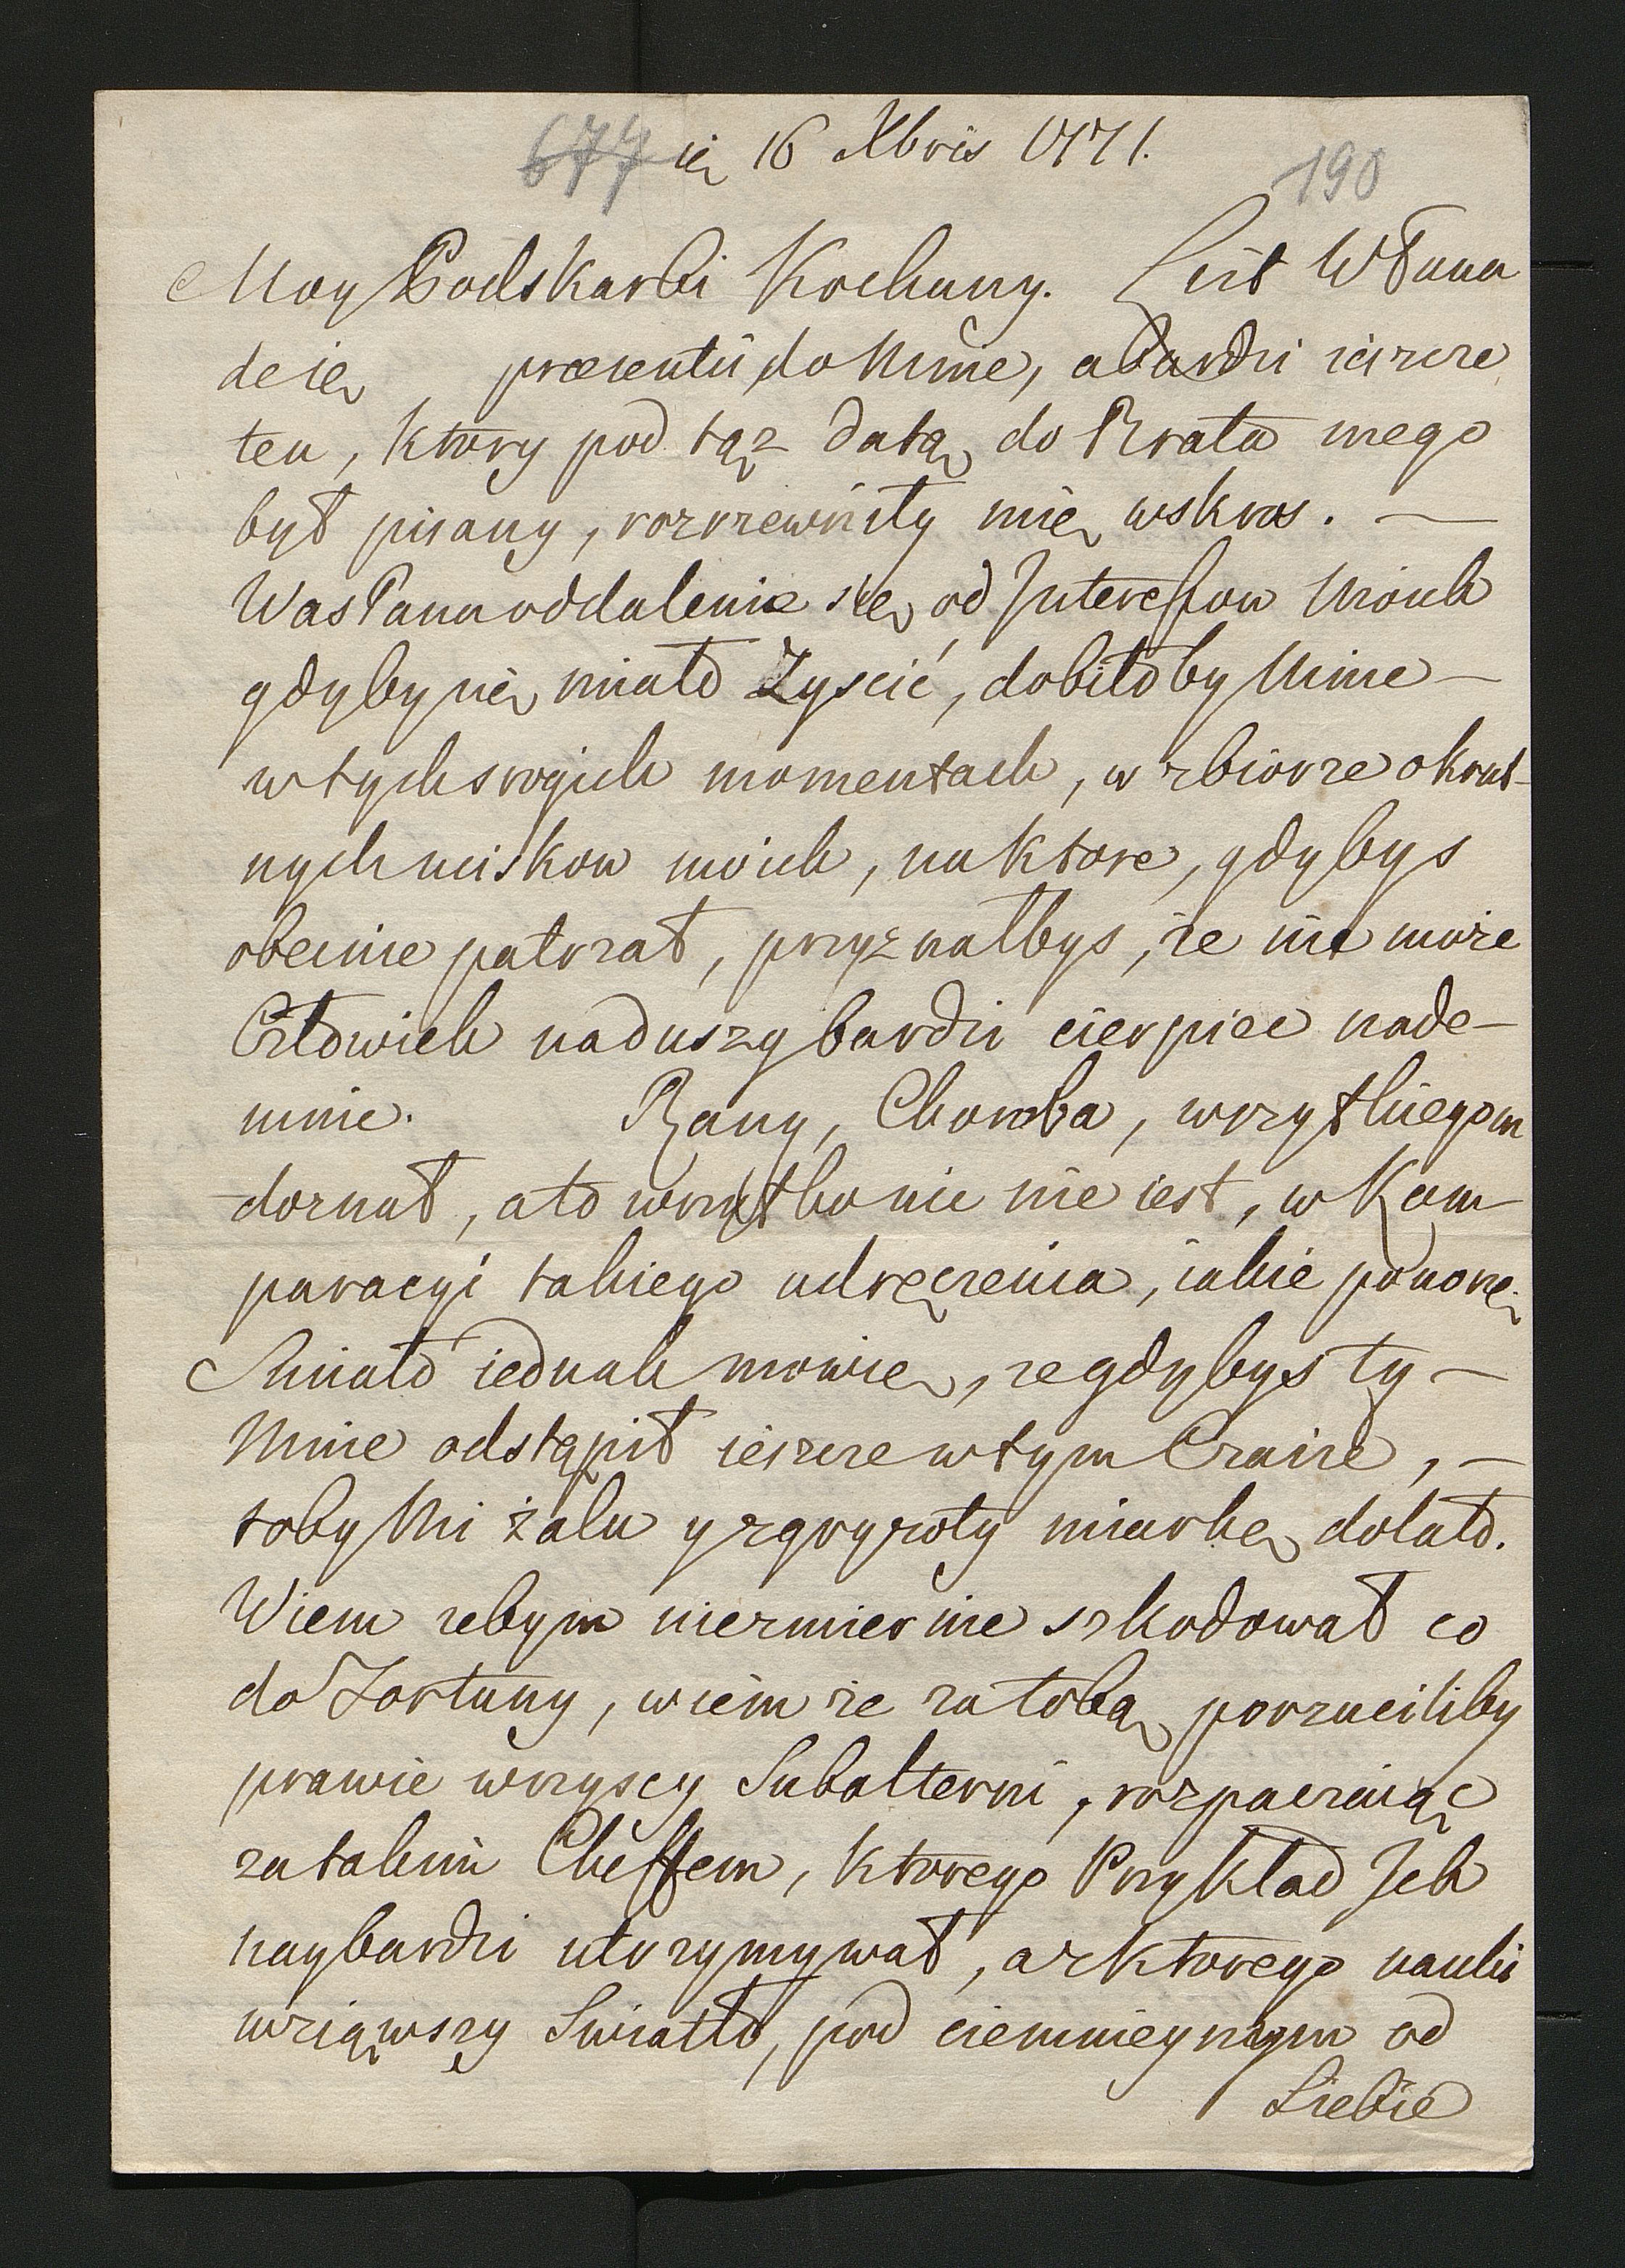 677 ię 16 Xbris 1771. 190
Moy Podskarbi Kochany. List WPana
de ię praesentii do Mnie, a bardzi ieszcze
ten, ktory pod tąż datą do Brata mego
był pisany, rozrzewniły mię wskros. —
WasPana oddalenie się od Interessow Moich
gdyby się miało Zyscić, dobiłoby Mnie —
w tych srogich momentach, w zbiorze okrut-
nych uciskow moich, na ktore, gdybys
obecnie patrzał, przyznałbys, że nie może
Człowiek na duszy bardzi cierpiec nade-
mnie. Rany, Choroba, wszytkiegom
doznał, a to wszytko nic nie iest, w Kom-
paracyi takiego udręczenia, iakie ponoszę.
Smiało iednak mowię, ze gdybys ty —
Mnie odstąpił ieszcze w tym Czasie, —
toby Mi żalu y zgryzoty miarkę dolało.
Wiem zebym niezmiernie szkodował co
do Fortuny, wiem że za tobą porzuciliby
prawie wszyscy Subalterni, rozpaczaiąc
za takim Cheffem, ktorego Przykład Ich
naybardzi utrzymywał, a z ktorego nauki
wziąwszy Swiatło, pod ciemnieyszym od
Siebie